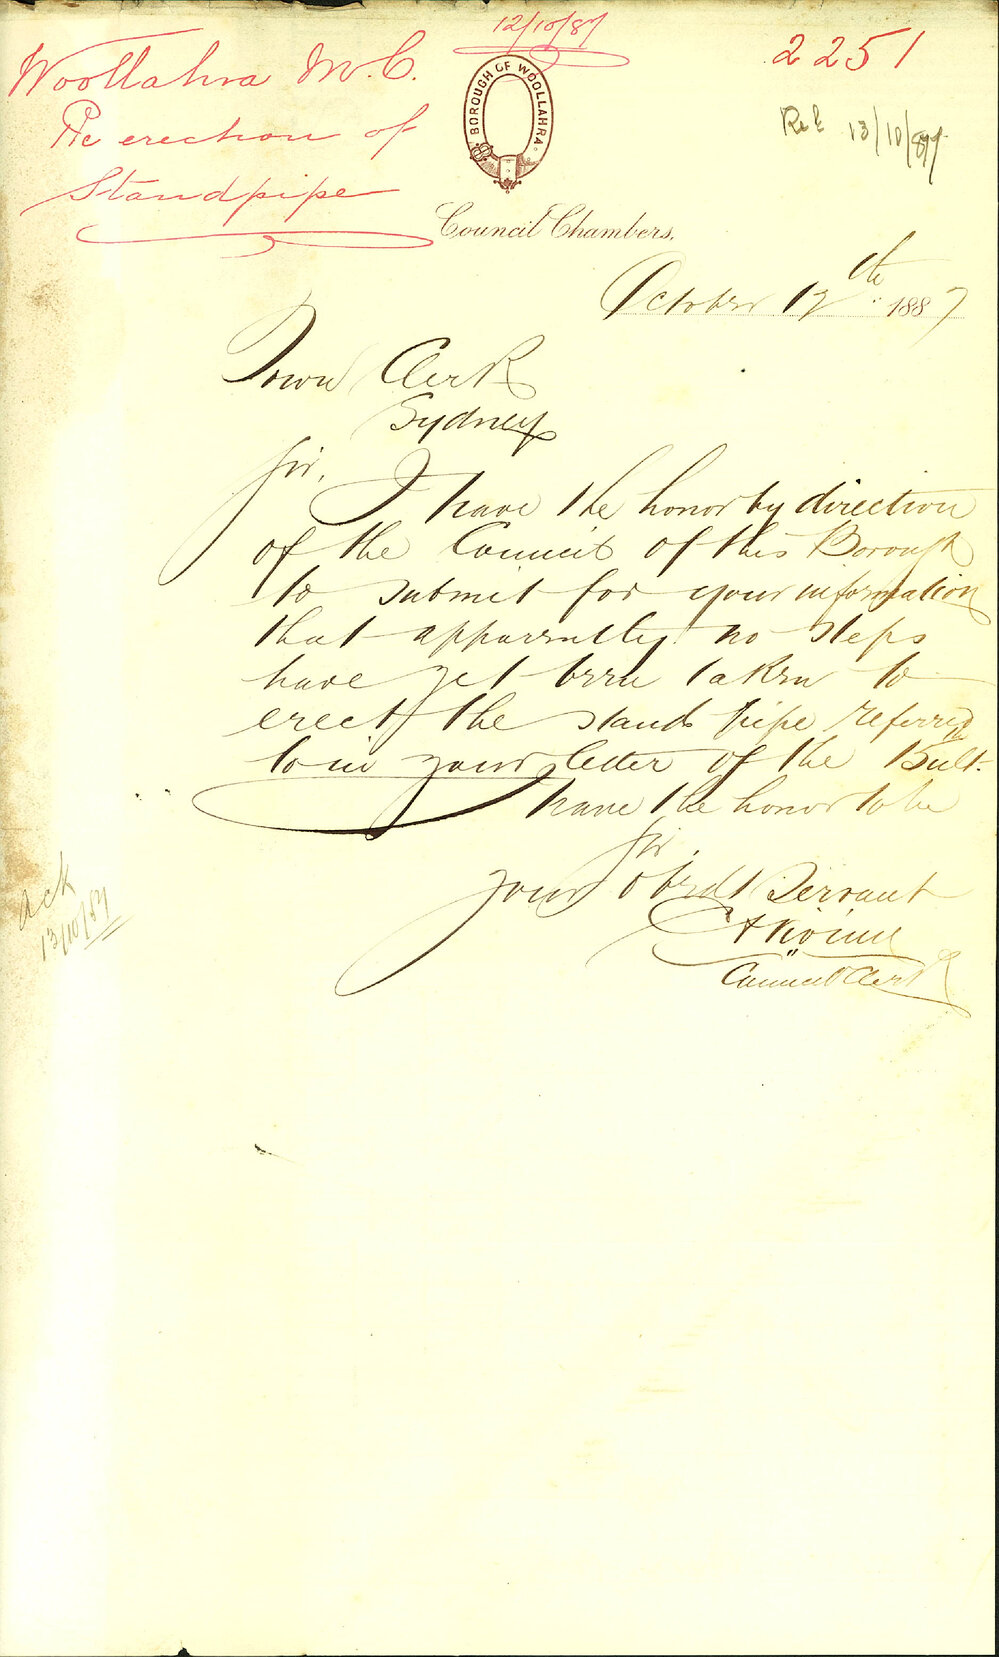 12/10/87
2251
Woollahra M.C.
Re erection of
Standpipe
BOROUGH OF WOOLLAHRA
Rec 13/10/87
Council Chambers,
October 12th 1887
Town Clerk
Sydney
Sir,
I have the honor by direction
of the Council of this Borough
to submit for your information
that apparently no steps
have yet been taken to
erect the stand pipe referred
to in your letter of the 15 ult.
I have the honor to be
Sir
your obedt Servant
Council Clerk
Ack
13/10/87